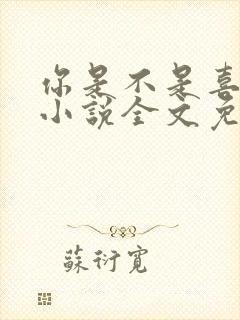 你是不是喜
小說全文免
蘇衍寬